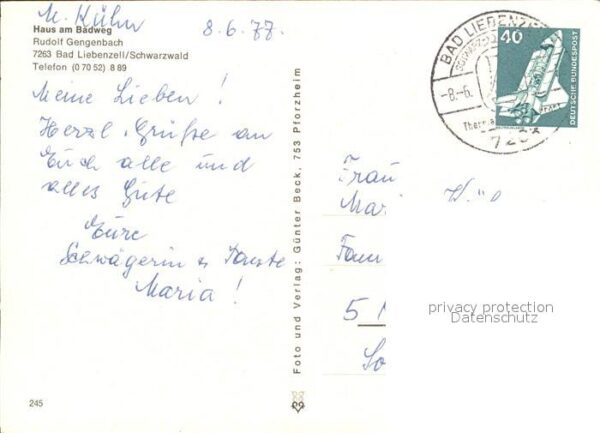 M. Kühn 8.6.77.
Haus am Badweg
Rudolf Gengenbach
7263 Bad Liebenzell/Schwarzwald
Telefon (0 70 52) 8 89
Meine Lieben !
Herzl. Grüße an
Euch alle und
alles Gute
Eure
Schwägerin u Tante
Maria !
245
Foto und Verlag: Günter Beck, 753 Pforzheim
BAD LIEBENZE
-8.-6.
Therm
40
DEUTSCHE BUNDESPOST
Frau
Mari
Fam
5
So
privacy protection
Datenschutz